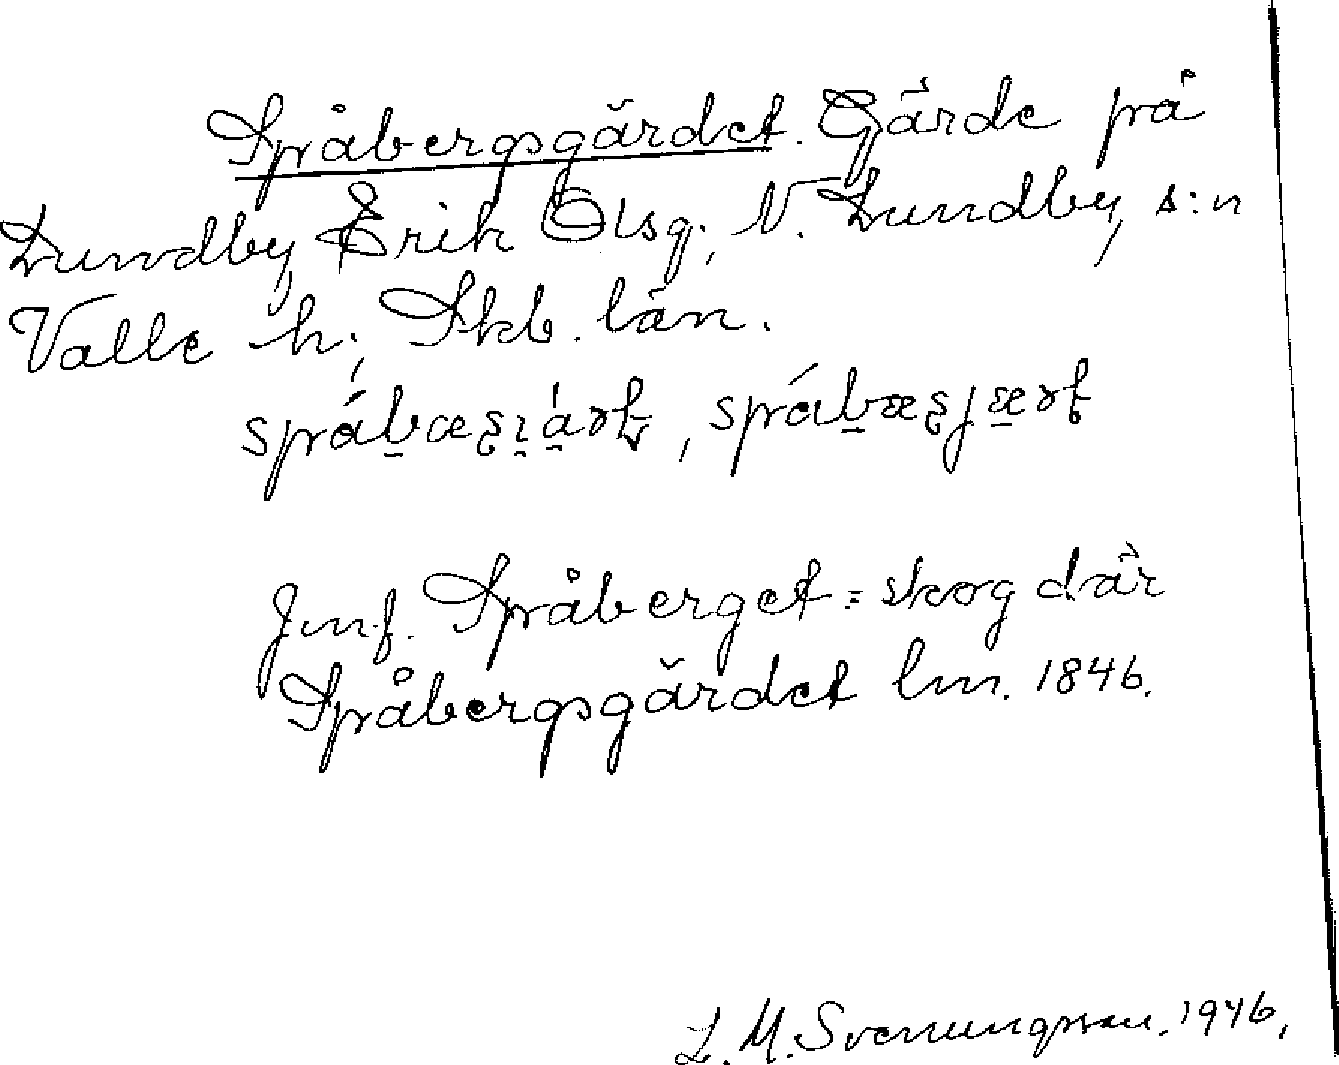 Spåbergsgärdet. Gärde på
Lundby Erik Olsg., N. Lundby, s:n
Valle h., Skb. län.
Jmf. Spåberget = skog där
Spåbergsgärdet lm. 1846.
L. M. Svenungsson. 1946.